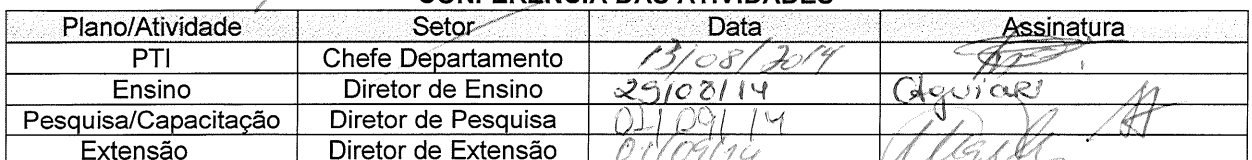 CONFERÊNCIA DAS ATIVIDADES
Plano/Atividade Setor Data Assinatura
PTI Chefe Departamento 13/08/2014
Ensino Diretor de Ensino 29/08/14 Aguiar
Pesquisa/Capacitação Diretor de Pesquisa 01/09/14
Extensão Diretor de Extensão 01/09/14